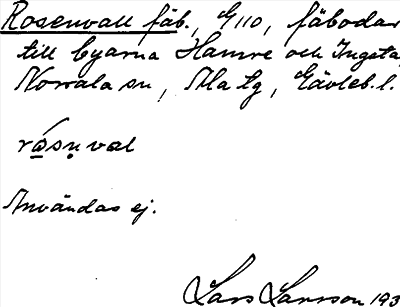 Rosenvall fäb., G 110, fäbodar
till byarna Hamre och Ingsta,
Norrala sn, Ala tg, Gävleb. l.
rósuval
Användas ej.
Lars Larsson 193